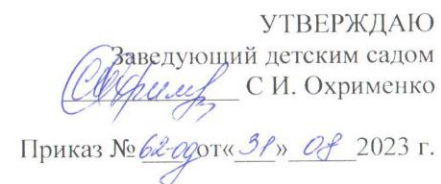 УТВЕРЖДАЮ
Заведующий детским садом
С И. Охрименко
Приказ № 62-од от« 31 » 08 2023 г.